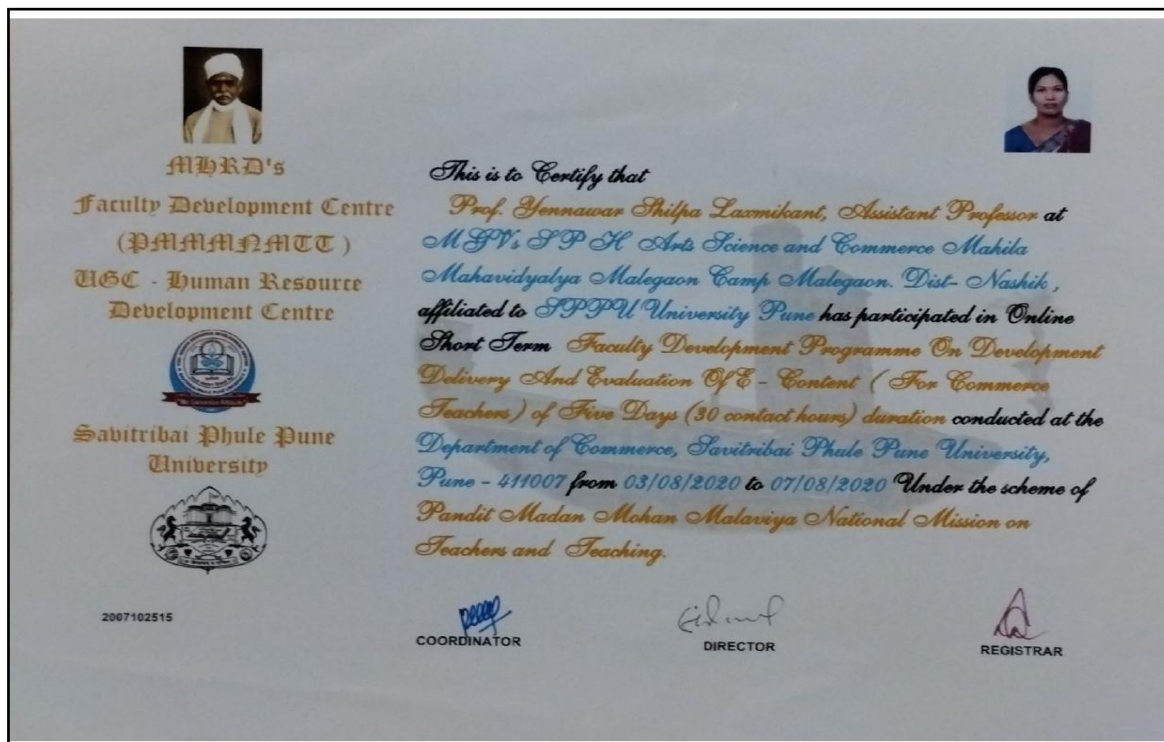 MHRD's
Faculty Development Centre
(PMMMNMTT )
UGC - Human Resource
Development Centre
Savitribai Phule Pune
University
2007102515
This is to Certify that
Prof. Yennawar Shilpa Laxmikant, Assistant Professor at
M GVs S P H Arts Science and Commerce Mahila
Mahavidyalya Malegaon Camp Malegaon. Dist- Nashik ,
affiliated to SPPU University Pune has participated in Online
Short Term Faculty Development Programme On Development
Delivery And Evaluation Of E - Content ( For Commerce
Teachers ) of Five Days (30 contact hours) duration conducted at the
Department of Commerce, Savitribai Phule Pune University,
Pune - 411007 from 03/08/2020 to 07/08/2020 Under the scheme of
Pandit Madan Mohan Malaviya National Mission on
Teachers and Teaching.
COORDINATOR
DIRECTOR
REGISTRAR